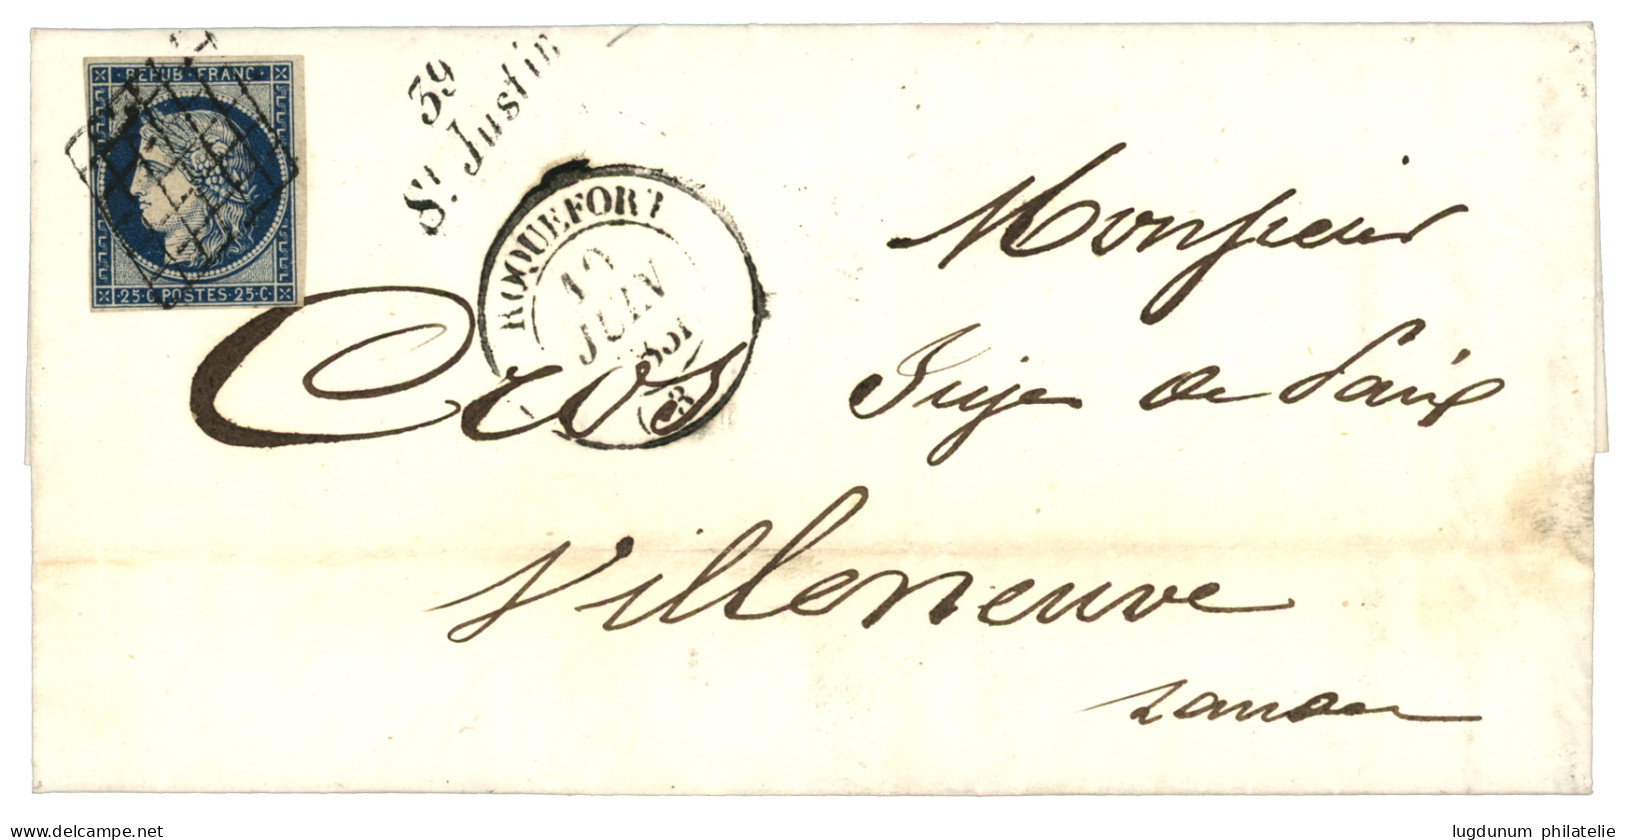 REPUB·FRANC
25·C·POSTES·25·C
39
St Justin
ROQUEFORT
JUIN
1851
Monsieur
Juge de Paix
Villeneuve
Landes
delcampe.net
lugdunum philatelie